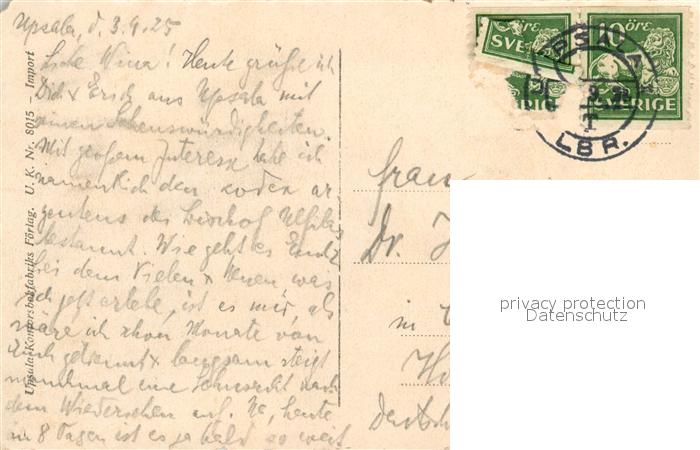 Upsala, d. 3.9.25
Liebe Nina! Heute grüße ich
Dich & Erich aus Upsala mit
seinen Sehenswürdigkeiten.
Mit großem Interesse habe ich
namentlich den codex ar
gentens des Bischof Ulfilas
bestaunt. Wie geht es Euch?
bei dem Vielen & Neuen was
ich jetzt erlebe, ist es mir, als
wäre ich schon Monate von
Euch getrennt & langsam steigt
manchmal eine Sehnsucht nach
dem Wiedersehen auf. Na, heute
in 8 Tagen ist es ja bald so weit.
Upsala Kontorsbokfabriks Förlag. U. K. Nr. 8015 - Import
ÖRE
SVE
RIG
10 ÖRE
SVERIGE
UPSALA
LBR.
Frau
Dr. H
in
H
Deutsch
privacy protection
Datenschutz